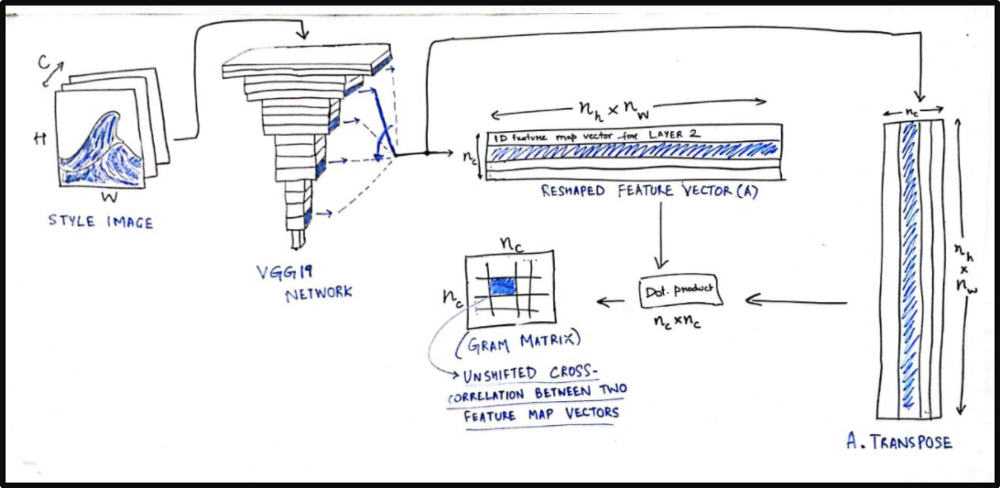 C
H
W
STYLE IMAGE
VGG19
NETWORK
n_h × n_w
n_c
1D Feature map vector for LAYER 2
RESHAPED FEATURE VECTOR (A)
n_c
n_h × n_w
A. TRANSPOSE
Dot. product
n_c × n_c
n_c
n_c
(GRAM MATRIX)
UNSHIFTED CROSS-
CORRELATION BETWEEN TWO
FEATURE MAP VECTORS